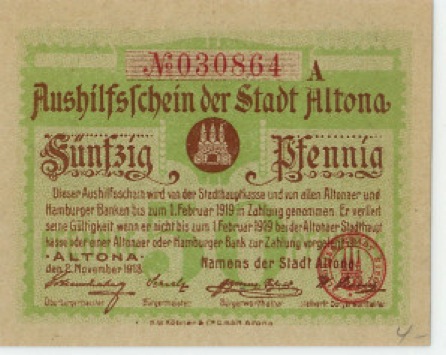 №030864 A
Aushilfsschein der Stadt Altona
Fünfzig Pfennig
Dieser Aushilfsschein wird von der Stadthauptkasse und von allen Altonaer und
Hamburger Banken bis zum 1. Februar 1919 in Zahlung genommen. Er verliert
seine Gültigkeit wenn er nicht bis zum 1. Februar 1919 bei der Altonaer Stadthaupt
kasse oder einer Altonaer oder Hamburger Bank zur Zahlung vorgelegt
·ALTONA· Namens der Stadt Altona
den 2. November 1918.
Oberbürgermeister Bürgermeister Bürgerworthalter
Altona
4-